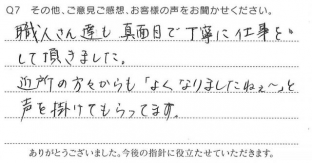 Q7 その他、ご意見ご感想、お客様の声をお聞かせください。
職人さん達も真面目で丁寧に仕事を
して頂きました。
近所の方々からも「よくなりましたねぇ〜」と
声を掛けてもらってます。
ありがとうございました。今後の指針に役立たせていただきます。